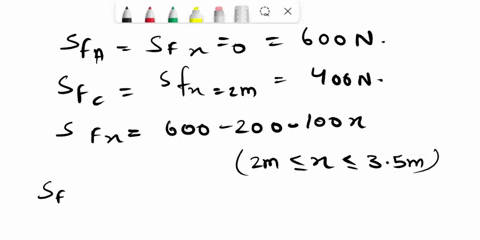 SfA = Sf x=0 = 600 N.
Sfc = Sfx=2m = 400 N.
S fx = 600 - 200 - 100x
(2m ≤ x ≤ 3.5m)
Sf